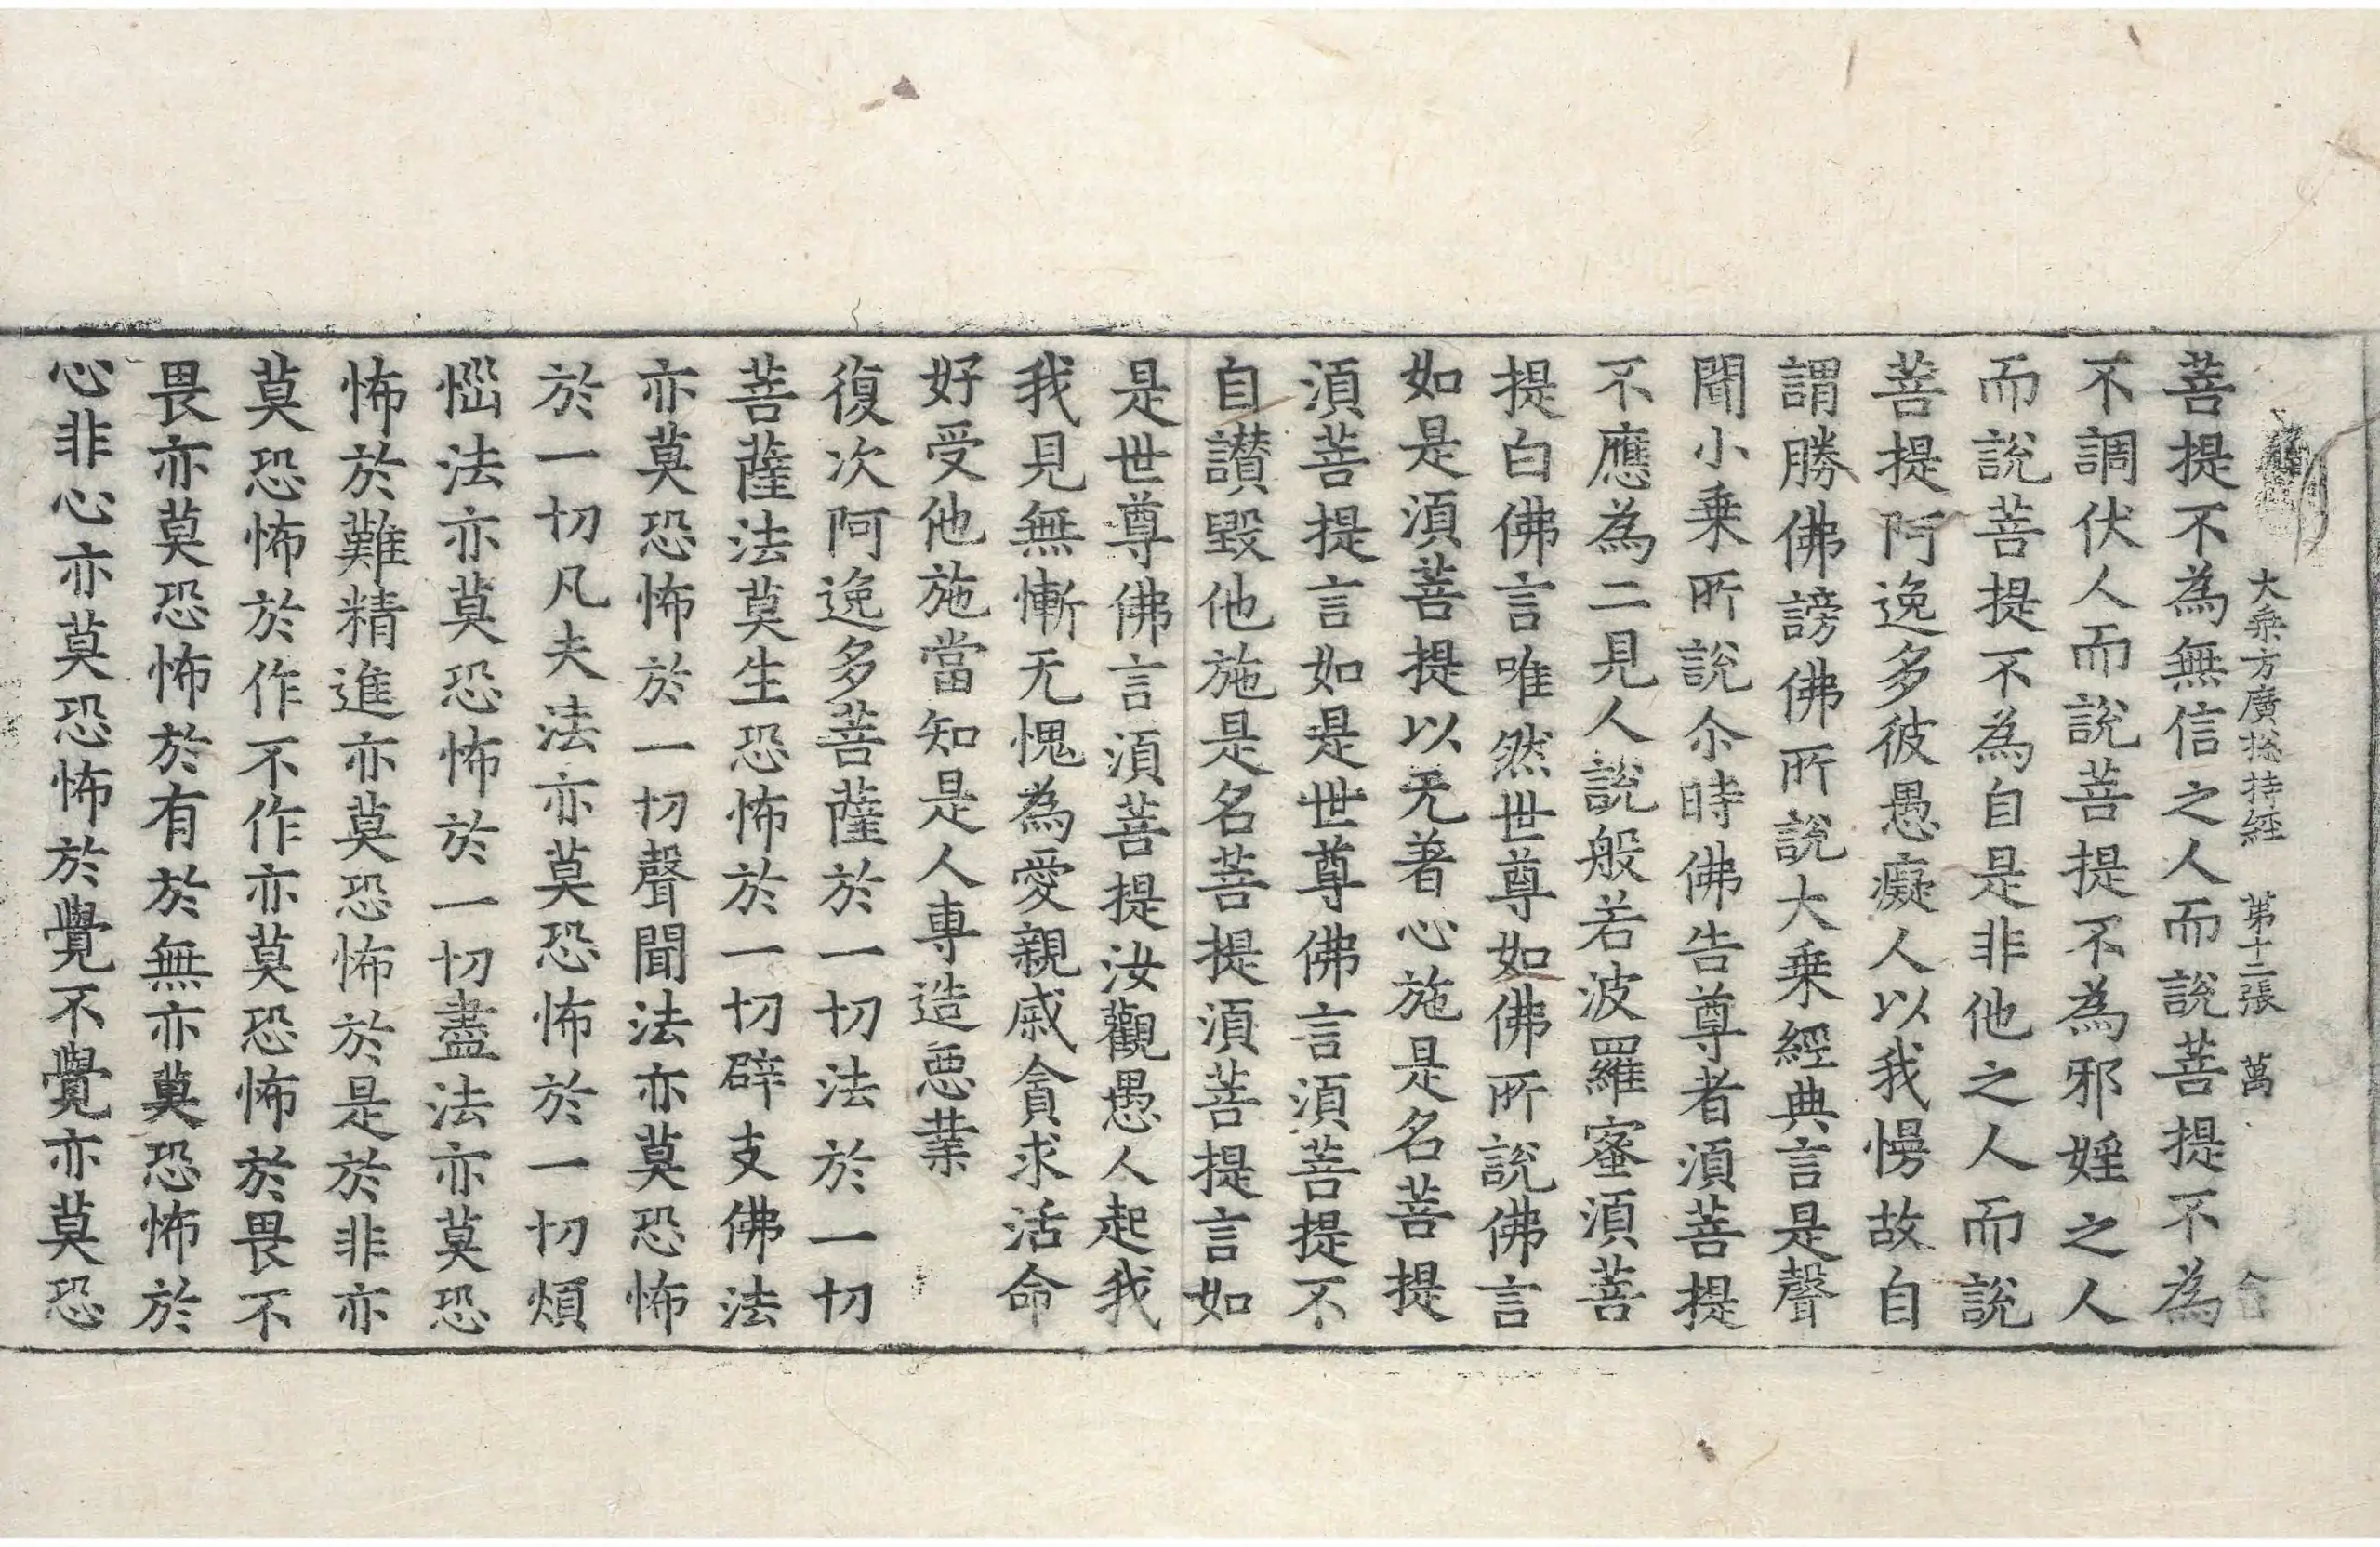 大乗方廣揔持經 第十二張 萬
菩提不為無信之人而説菩提不為
不調伏人而説菩提不為邪婬之人
而説菩提不為自是非他之人而説
菩提阿逸多彼愚癡人以我慢故自
謂勝佛謗佛所説大乗經典言是聲
聞小乗所説尒時佛告尊者湏菩提
不應為二見人説般若波羅蜜湏菩
提白佛言唯然世尊如佛所説佛言
如是湏菩提以无著心施是名菩提
湏菩提言如是世尊佛言湏菩提不
自讃毀他施是名菩提湏菩提言如
是世尊佛言湏菩提汝觀愚人起我
我見無慚无愧為愛親戚貪求活命
好受他施當知是人專造惡業
復次阿逸多菩薩於一切法於一切
菩薩法莫生恐怖於一切辟支佛法
亦莫恐怖於一切聲聞法亦莫恐怖
於一切凡夫法亦莫恐怖於一切煩
惱法亦莫恐怖於一切盡法亦莫恐
怖於難精進亦莫恐怖於是於非亦
莫恐怖於作不作亦莫恐怖於畏不
畏亦莫恐怖於有於無亦莫恐怖於
心非心亦莫恐怖於覺不覺亦莫恐